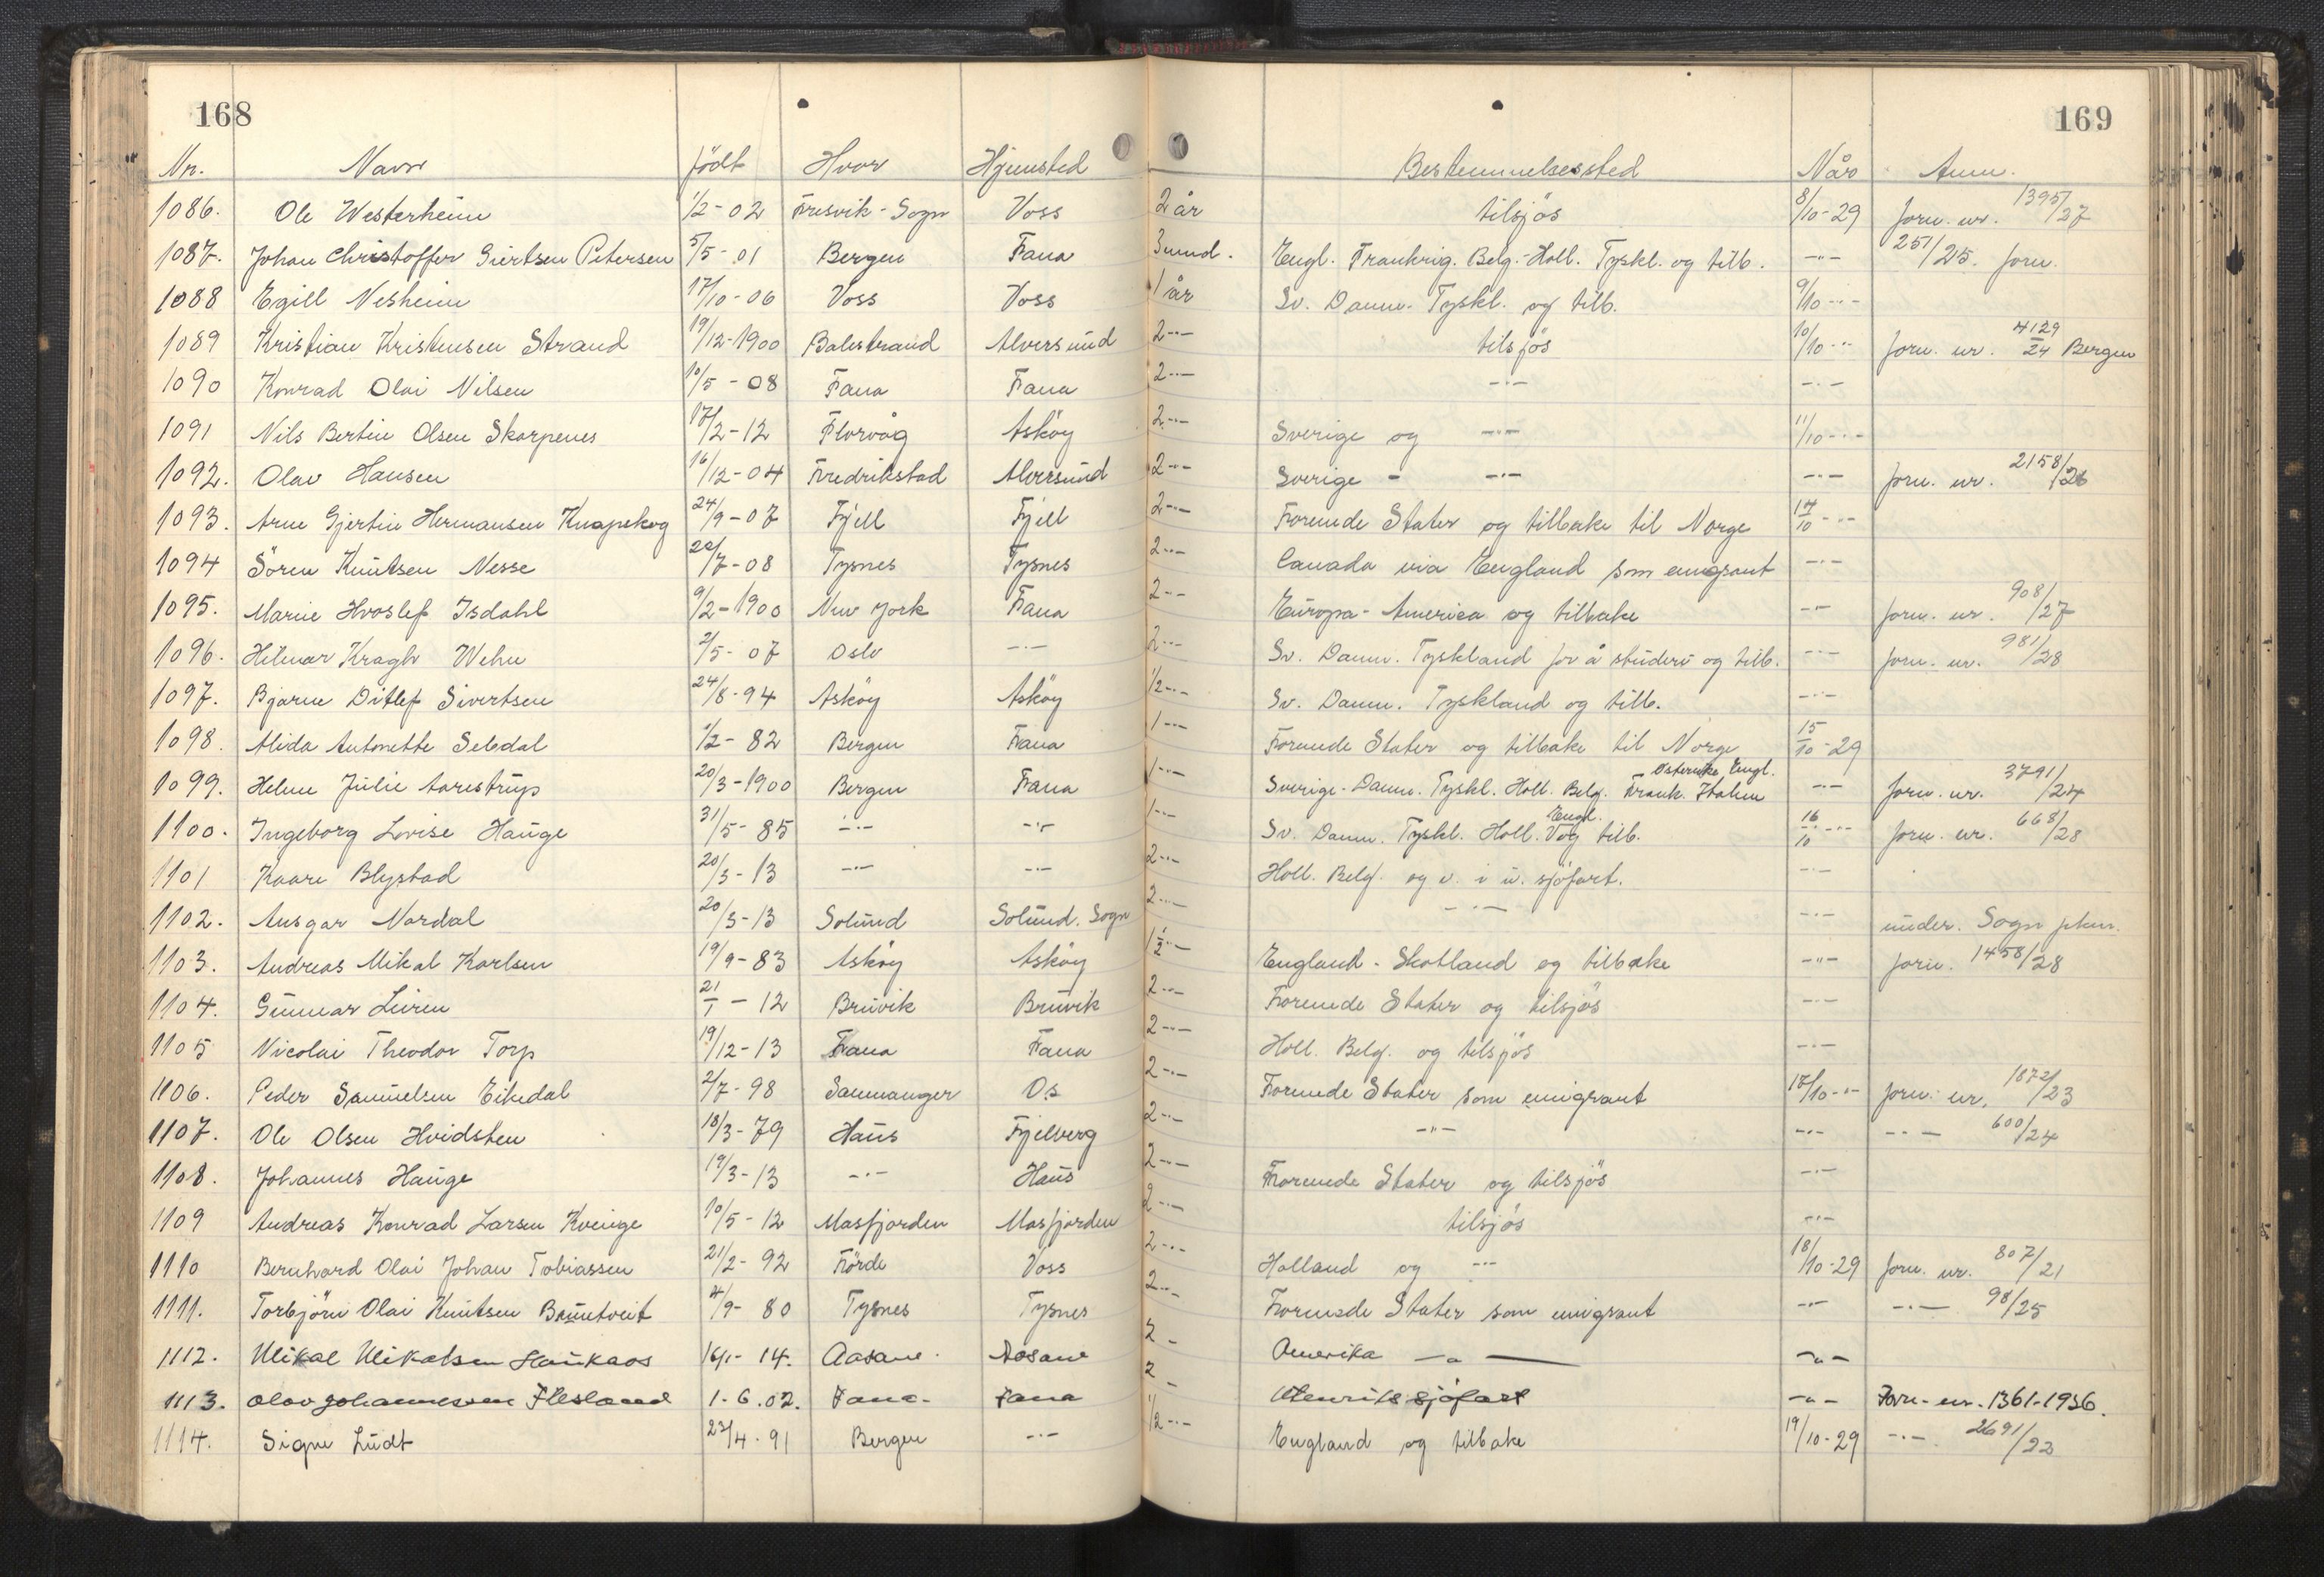 168
169
Nr. Navn födt Hvor Hjemsted Bestemmelsessted Når Anm.
1086. Ole Westerheim 1/2-02 Fresvik-Sogn Voss 2 år tilsjös 8/10-29 forn. nr. 1395/27
1087. Johan Christoffer Giertsen Petersen 5/5-01 Bergen Fana 3 mnd. Engl. Frankrig. Belg.-Holl. Tyskl. og tilb. -"- 251/25. forn.
1088 Egill Nesheim 17/10-06 Voss Voss 1 år Sv. Danm. Tyskl. og tilb. 9/10 -"-
1089 Kristian Kristensen Strand 19/12-1900 Balestrand Alversund 2 -"- tilsjös 10/10 -"- forn. nr. 4129/24 Bergen
1090 Konrad Olai Nilsen 10/5-08 Fana Fana 2 -"- -"- -"-
1091 Nils Bertin Olsen Skarpenes 17/2-12 Florvåg Asköy 2 -"- Sverige og -"- 11/10 -"-
1092. Olav Hansen 16/12-04 Fredrikstad Alversund 2 -"- Sverige - -"- -"- forn. nr. 2158/26
1093. Arne Gjertin Hermansen Knapskog 24/9-07 Fjell Fjell 2 -"- Forenede Stater og tilbake til Norge 14/10 -"-
1094 Sören Knutsen Nesse 20/7-08 Tysnes Tysnes 2 -"- Canada via England som emigrant -"-
1095. Marie Hvoslef Isdahl 9/2-1900 New York Fana 2 -"- Europa-America og tilbake -"- forn. nr. 908/27
1096. Hilmar Kragh Wehn 2/5-07 Oslo -"- 2 -"- Sv. Danm. Tyskland for å studere og tilb. -"- forn. nr. 981/28
1097. Bjarne Ditlef Sivertsen 24/8-94 Asköy Asköy 1/2 -"- Sv. Danm. Tyskland og tilb. -"-
1098. Alida Antonette Seldal 1/2-82 Bergen Fana 1 -"- Forenede Stater og tilbake til Norge 15/10-29
Österrike Engl.
1099. Helene Julie Aarestrup 20/3-1900 Bergen Fana 1 -"- Sverige-Danm. Tyskl. Holl. Belg. Frank. Italien -"- forn. nr. 3791/24
Engl.
1100. Ingeborg Lovise Hauge 31/5-85 -"- -"- 1 -"- Sv. Danm. Tyskl. Holl. V og tilb. 16/10 -"- forn. nr. 668/28
1101 Kaare Blystad 20/3-13 -"- -"- 2 -"- Holl. Belg. og v. i u. sjöfart. -"-
1102. Ansgar Nordal 20/3-13 Solund Solund. Sogn 2 -"- -"- -"- under. Sogn pkm.
1103. Andreas Mikal Karlsen 19/9-83 Asköy Asköy 1 1/2 -"- England-Skotland og tilbake -"- forn. 1458/28
1104. Gunnar Leiren 21/1-12 Bruvik Bruvik 2 -"- Forenede Stater og tilsjös -"-
1105 Nicolai Theodor Torp 19/12-13 Fana Fana 2 -"- Holl. Belg. og tilsjös -"-
1106. Peder Samuelsen Eikedal 2/7-98 Samnanger Os 2 -"- Forenede Stater som emigrant 17/10 -"- forn. nr. 1872/23
1107. Ole Olsen Hvidsten 18/3-79 Haus Fjelberg 2 -"- -"- -"- -"- 600/24
1108. Johannes Hauge 19/3-13 -"- Haus 2 -"- Forenede Stater og tilsjös -"-
1109 Andreas Konrad Larsen Kvinge 10/5-12 Masfjorden Masfjorden 2 -"- tilsjös -"-
1110 Bernhard Olai Johan Tobiassen 21/2-92 Förde Voss 2 -"- Holland og -"- 18/10-29 forn. nr. 807/21
1111. Torbjörn Olai Knutsen Bruntveit 4/9-80 Tysnes Tysnes 2 -"- Forenede Stater som emigrant -"- -"- 98/25
1112. Mikal Mikalsen Haukaas 16/1-14. Aasane Aasane 2 - Amerika -"- -"-
1113. Olav Johannessen Flesland 1-6.02. Fana- Fana 2 - Utenriks sjöfart -"- Forn. nr. 1361-1936.
1114. Signe Lüdt 23/4-91 Bergen -"- 1/2 -"- England og tilbake 19/10-29 -"- 2691/23